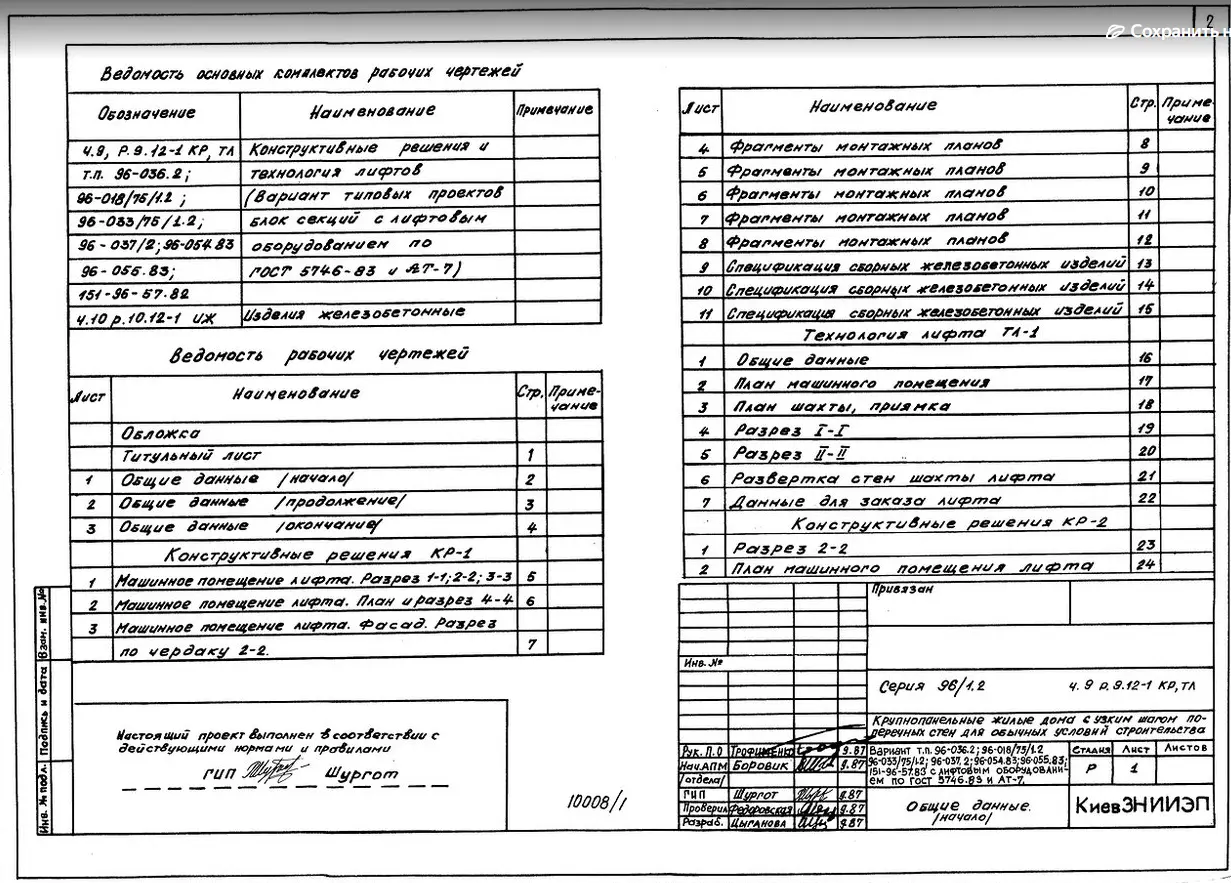 2
Сохранить
Ведомость основных комплектов рабочих чертежей
Обозначение Наименование Примечание
ч.9, Р.9.12-1 КР, ТЛ Конструктивные решения и
т.п. 96-036.2; технология лифтов
96-018/75/1.2; (Вариант типовых проектов
96-033/75/1.2; блок секций с лифтовым
96-037/2; 96-054.83 оборудованием по
96-055.83; ГОСТ 5746-83 и АТ-7)
151-96-57.82
ч.10 р.10.12-1 ИЖ Изделия железобетонные
Ведомость рабочих чертежей
Лист Наименование Стр. Приме-
чание
Обложка
Титульный лист 1
1 Общие данные /начало/ 2
2 Общие данные /продолжение/ 3
3 Общие данные /окончание/ 4
Конструктивные решения КР-1
1 Машинное помещение лифта. Разрез 1-1; 2-2; 3-3 5
2 Машинное помещение лифта. План и разрез 4-4 6
3 Машинное помещение лифта. Фасад. Разрез
по чердаку 2-2. 7
Настоящий проект выполнен в соответствии с
действующими нормами и правилами
ГИП Шургот
10008/1
Лист Наименование Стр. Приме-
чание
4 Фрагменты монтажных планов 8
5 Фрагменты монтажных планов 9
6 Фрагменты монтажных планов 10
7 Фрагменты монтажных планов 11
8 Фрагменты монтажных планов 12
9 Спецификация сборных железобетонных изделий 13
10 Спецификация сборных железобетонных изделий 14
11 Спецификация сборных железобетонных изделий 15
Технология лифта ТЛ-1
1 Общие данные 16
2 План машинного помещения 17
3 План шахты, приямка 18
4 Разрез I-I 19
5 Разрез II-II 20
6 Развертка стен шахты лифта 21
7 Данные для заказа лифта 22
Конструктивные решения КР-2
1 Разрез 2-2 23
2 План машинного помещения лифта 24
Привязан
Инв. №
Серия 96/1.2 ч. 9 р.9.12-1 КР,ТЛ
Крупнопанельные жилые дома с узким шагом по-
перечных стен для обычных условий строительства
Рук. П.О Трофименко 9.87
Нач.АПМ Боровик 9.87
/отдела/
ГИП Шургот 9.87
Проверил Федоровская 9.87
Разраб. Цыганова 9.87
Вариант т.п. 96-036.2; 96-018/75/1.2
96-033/75/1.2; 96-037.2; 96-054.83; 96-055.83;
151-96-57.83 с лифтовым оборудовани-
ем по ГОСТ 5746.83 и АТ-7.
Стадия Лист Листов
Р 1
Общие данные.
/начало/
КиевЗНИИЭП
Взам. инв.№
Подпись и дата
Инв. № подл.